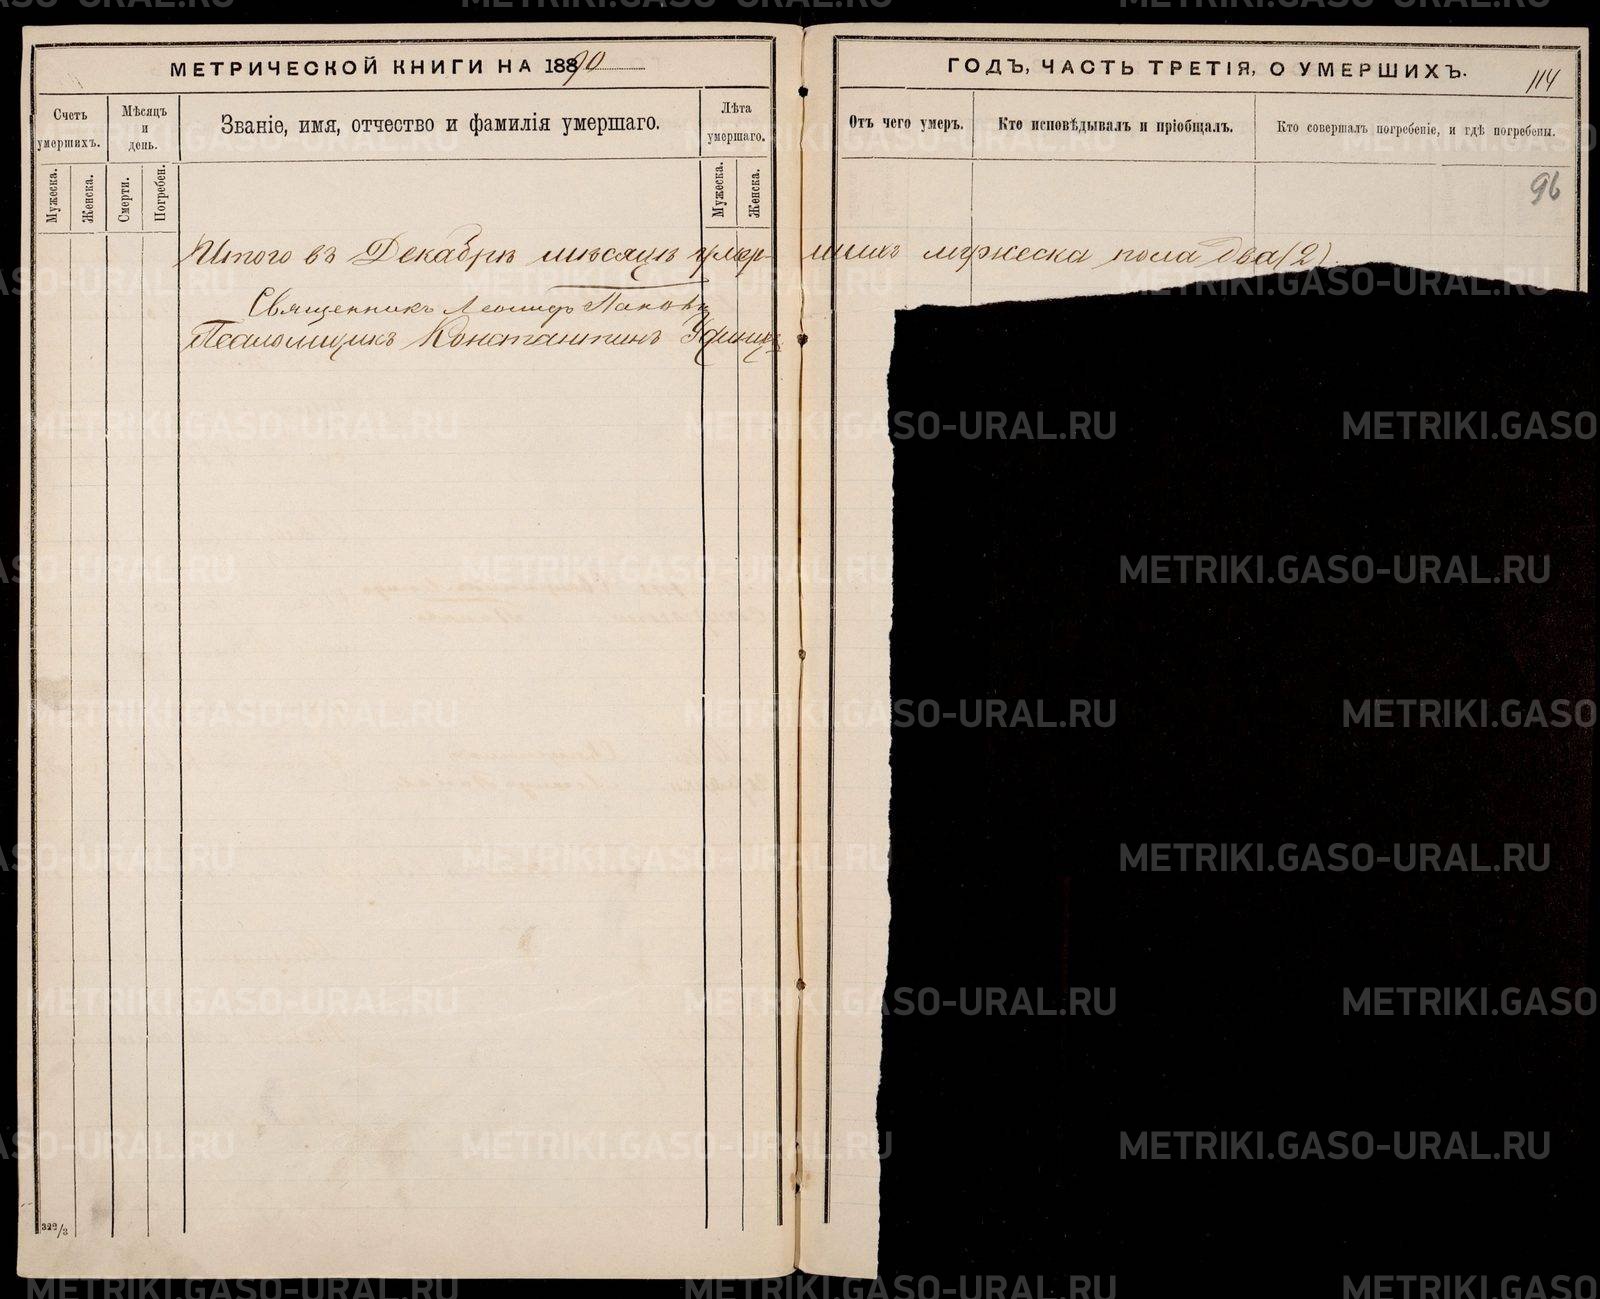 МЕТРИЧЕСКОЙ КНИГИ НА 1890
ГОДЪ, ЧАСТЬ ТРЕТІЯ, О УМЕРШИХЪ.
114
Счетъ умершихъ.
Мѣсяцъ и день.
Званіе, имя, отчество и фамилія умершаго.
Лѣта умершаго.
Отъ чего умеръ.
Кто исповѣдывалъ и пріобщалъ.
Кто совершалъ погребеніе, и гдѣ погребены.
Мужеска.
Женска.
Смерти.
Погребен.
Мужеска.
Женска.
96
Итого въ Декабрѣ мѣсяцѣ умершихъ мужеска пола два (2)
Священникъ Леонидъ Поповъ
Псаломщикъ Константинъ
322/3
METRIKI.GASO-URAL.RU